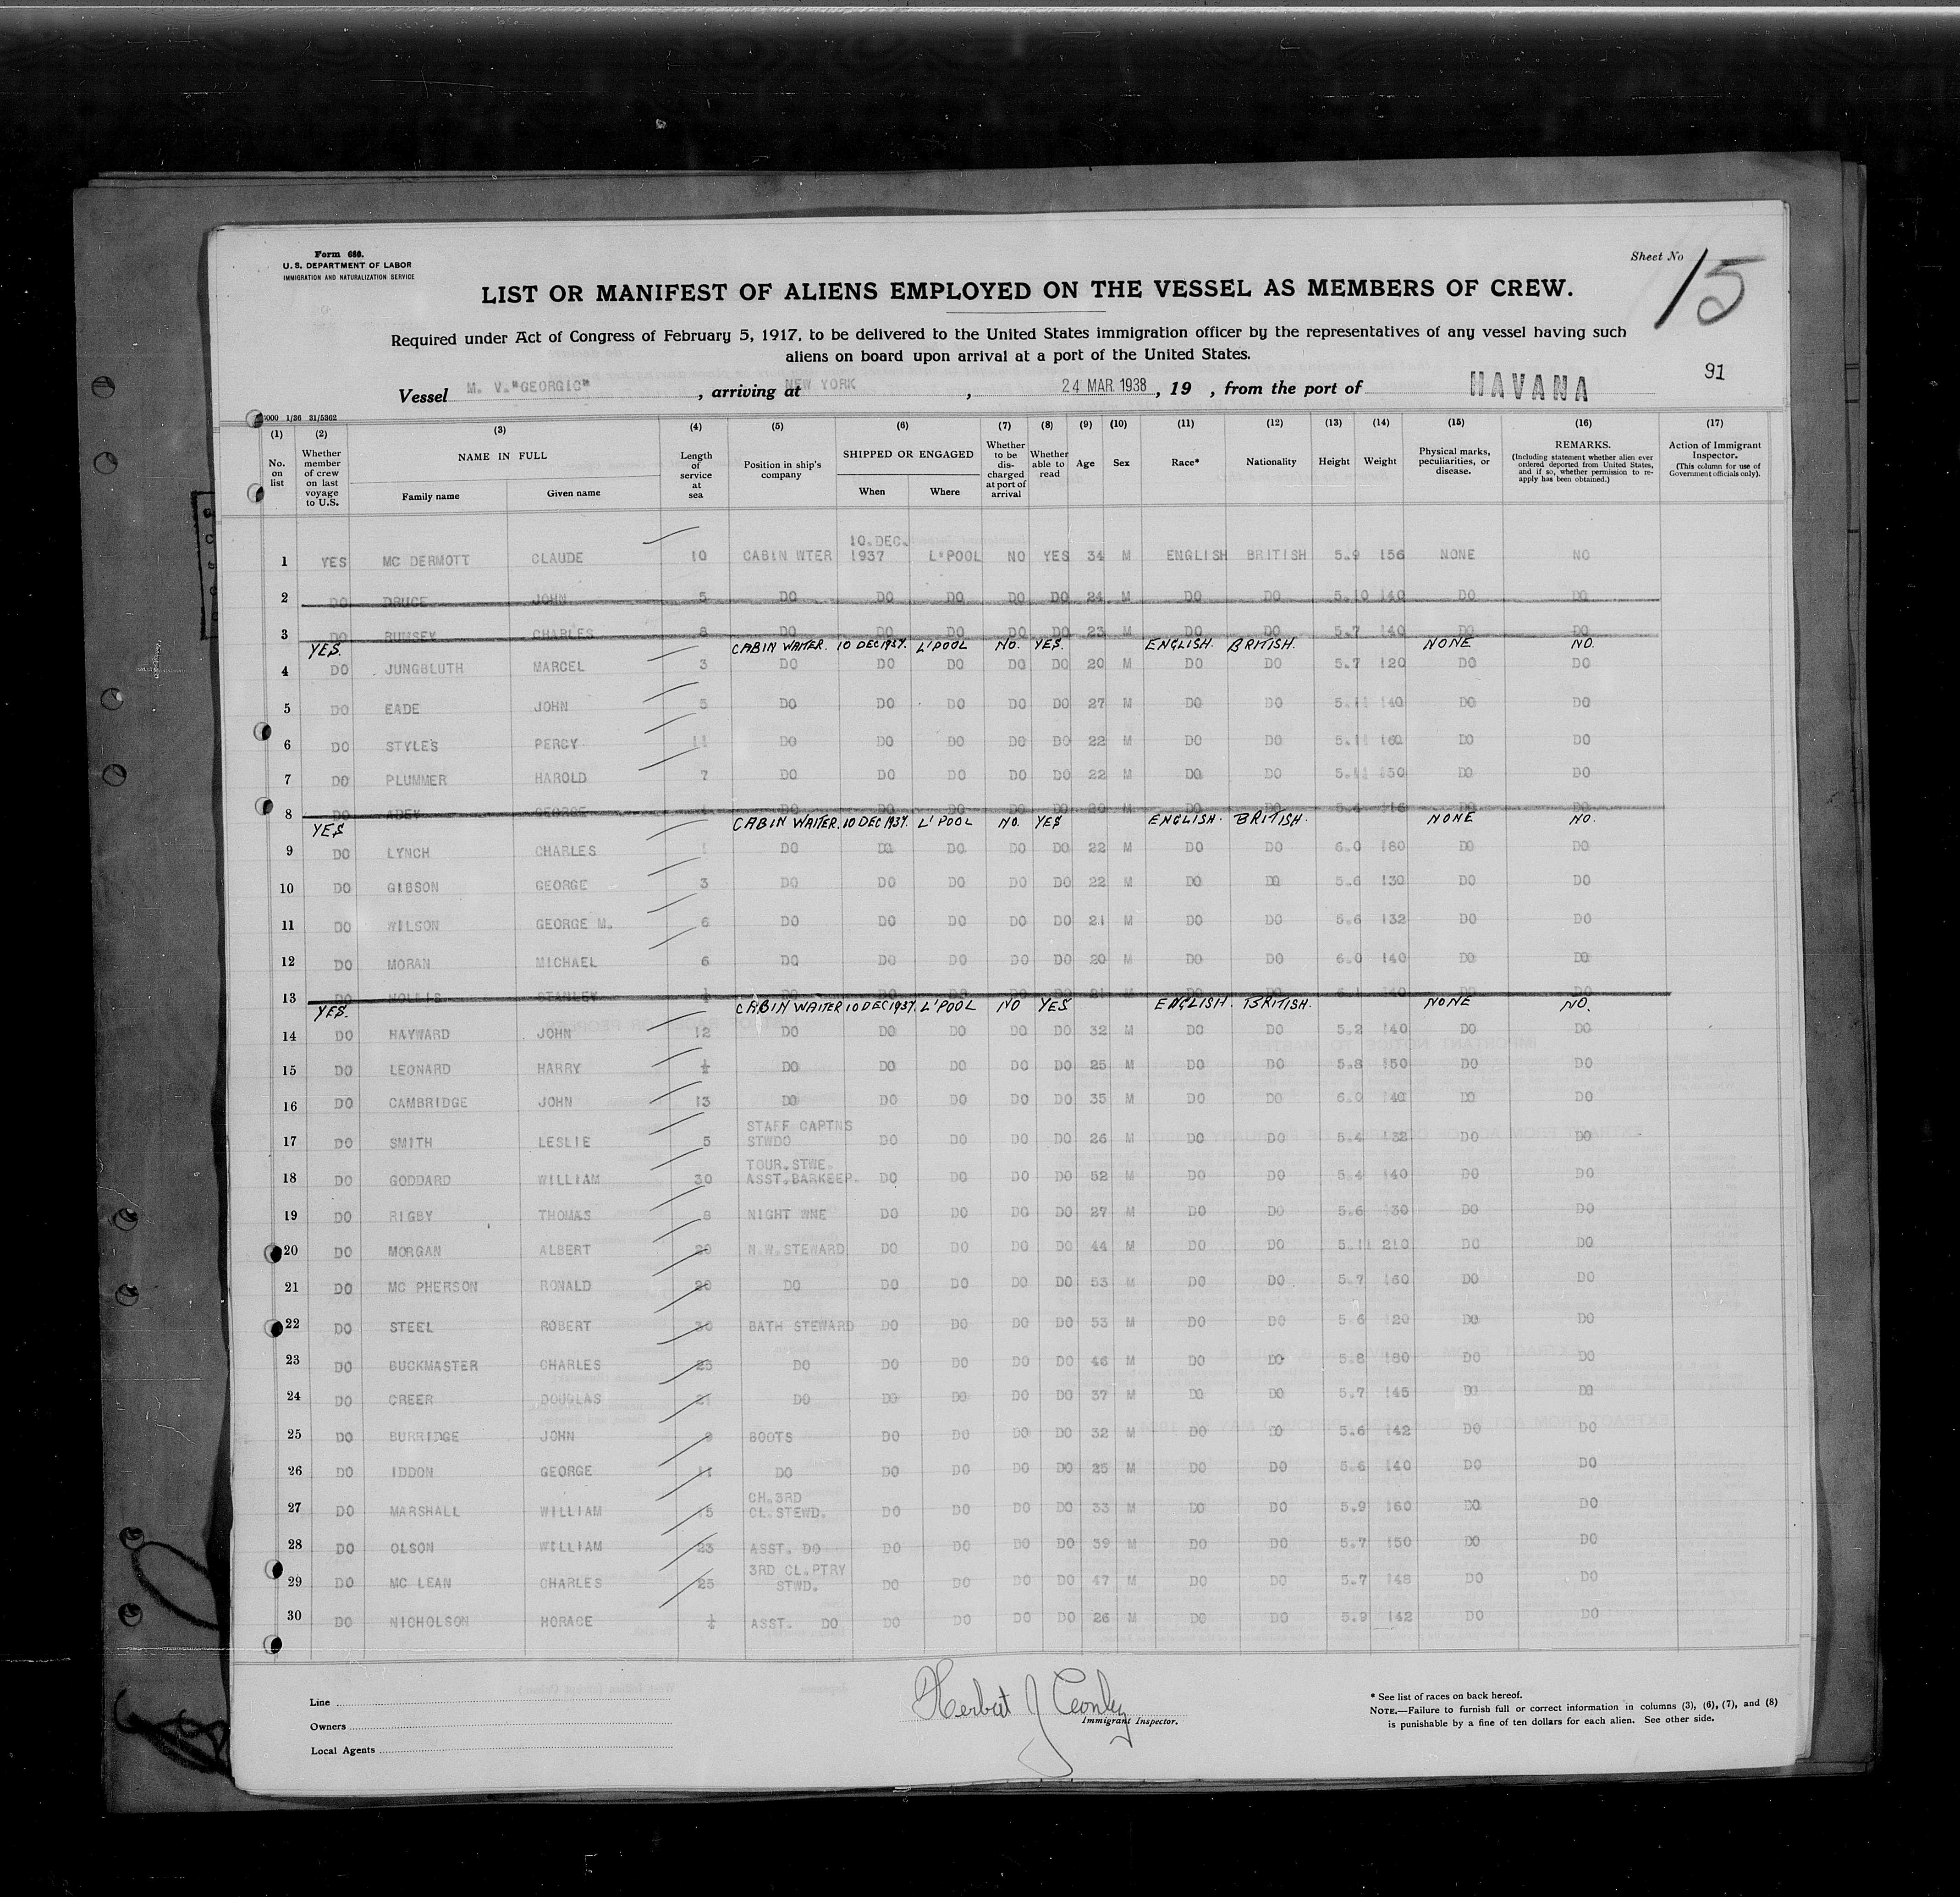 Form 680.
U. S. DEPARTMENT OF LABOR
IMMIGRATION AND NATURALIZATION SERVICE
Sheet No 15
LIST OR MANIFEST OF ALIENS EMPLOYED ON THE VESSEL AS MEMBERS OF CREW.
Required under Act of Congress of February 5, 1917, to be delivered to the United States immigration officer by the representatives of any vessel having such
aliens on board upon arrival at a port of the United States.
91
Vessel M. V. "GEORGIC" , arriving at NEW YORK , 24 MAR 1938 , 19 , from the port of HAVANA
5000 1/36 31/5362
(1) (2) (3) (4) (5) (6) (7) (8) (9) (10) (11) (12) (13) (14) (15) (16) (17)
No. on list
Whether member of crew on last voyage to U.S.
NAME IN FULL
Family name Given name
Length of service at sea
Position in ship's company
SHIPPED OR ENGAGED
When Where
Whether to be discharged at port of arrival
Whether able to read
Age
Sex
Race*
Nationality
Height
Weight
Physical marks, peculiarities, or disease.
REMARKS.
(Including statement whether alien ever ordered deported from United States, and if so, whether permission to reapply has been obtained.)
Action of Immigrant Inspector.
(This column for use of Government officials only).
10.DEC.
1 YES MC DERMOTT CLAUDE 10 CABIN WTER 1937 L'POOL NO YES 34 M ENGLISH BRITISH 5.9 156 NONE NO
2 DO DRUCE JOHN 5 DO DO DO DO DO 24 M DO DO 5.10 140 DO DO
3 DO RUMSEY CHARLES 8 DO DO DO DO DO 23 M DO DO 5.7 140 DO DO
YES. CABIN WAITER. 10 DEC 1937. L'POOL NO. YES. ENGLISH. BRITISH. NONE NO.
4 DO JUNGBLUTH MARCEL 3 DO DO DO DO DO 20 M DO DO 5.7 120 DO DO
5 DO EADE JOHN 5 DO DO DO DO DO 27 M DO DO 5.11 140 DO DO
6 DO STYLES PERCY 11 DO DO DO DO DO 22 M DO DO 5.11 160 DO DO
7 DO PLUMMER HAROLD 7 DO DO DO DO DO 22 M DO DO 5.11 150 DO DO
8 DO ADEY GEORGE DO DO DO DO DO 20 M DO DO 5.4 116 DO DO
YES CABIN WAITER. 10 DEC 1937. L'POOL NO. YES ENGLISH. BRITISH. NONE NO.
9 DO LYNCH CHARLES 1 DO DO DO DO DO 22 M DO DO 6.0 180 DO DO
10 DO GIBSON GEORGE 3 DO DO DO DO DO 22 M DO DO 5.6 130 DO DO
11 DO WILSON GEORGE M. 6 DO DO DO DO DO 21 M DO DO 5.6 132 DO DO
12 DO MORAN MICHAEL 6 DO DO DO DO DO 20 M DO DO 6.0 140 DO DO
13 DO HOLLIS STANLEY DO DO DO DO DO 21 M DO DO 6.1 140 DO DO
YES. CABIN WAITER 10 DEC 1937. L'POOL NO YES ENGLISH. BRITISH. NONE NO.
14 DO HAYWARD JOHN 12 DO DO DO DO DO 32 M DO DO 5.2 140 DO DO
15 DO LEONARD HARRY DO DO DO DO DO 25 M DO DO 5.8 150 DO DO
16 DO CAMBRIDGE JOHN 13 DO DO DO DO DO 35 M DO DO 6.0 140 DO DO
STAFF CAPTNS
17 DO SMITH LESLIE 5 STWDO DO DO DO DO 26 M DO DO 5.4 132 DO DO
TOUR.STWE.
18 DO GODDARD WILLIAM 30 ASST.BARKEEP. DO DO DO DO 52 M DO DO 5.4 140 DO DO
19 DO RIGBY THOMAS 8 NIGHT WNE DO DO DO DO 27 M DO DO 5.6 130 DO DO
20 DO MORGAN ALBERT 20 N.W.STEWARD DO DO DO DO 44 M DO DO 5.11 210 DO DO
21 DO MC PHERSON RONALD 20 DO DO DO DO DO 53 M DO DO 5.7 160 DO DO
22 DO STEEL ROBERT 30 BATH STEWARD DO DO DO DO 53 M DO DO 5 6 120 DO DO
23 DO BUCKMASTER CHARLES 25 DO DO DO DO DO 46 M DO DO 5.8 180 DO DO
24 DO CREER DOUGLAS 21 DO DO DO DO DO 37 M DO DO 5.7 145 DO DO
25 DO BURRIDGE JOHN 9 BOOTS DO DO DO DO 32 M DO DO 5.6 142 DO DO
26 DO IDDON GEORGE 11 DO DO DO DO DO 25 M DO DO 5.6 140 DO DO
CH.3RD
27 DO MARSHALL WILLIAM 15 CL.STEWD. DO DO DO DO 33 M DO DO 5.9 160 DO DO
28 DO OLSON WILLIAM 23 ASST. DO DO DO DO DO 39 M DO DO 5.7 150 DO DO
3RD CL.PTRY
29 DO MC LEAN CHARLES 25 STWD. DO DO DO DO 47 M DO DO 5.7 148 DO DO
30 DO NICHOLSON HORACE ASST. DO DO DO DO DO 26 M DO DO 5.9 142 DO DO
Line
Owners
Local Agents
Herbert J Conley
Immigrant Inspector.
* See list of races on back hereof.
NOTE.—Failure to furnish full or correct information in columns (3), (6), (7), and (8)
is punishable by a fine of ten dollars for each alien. See other side.